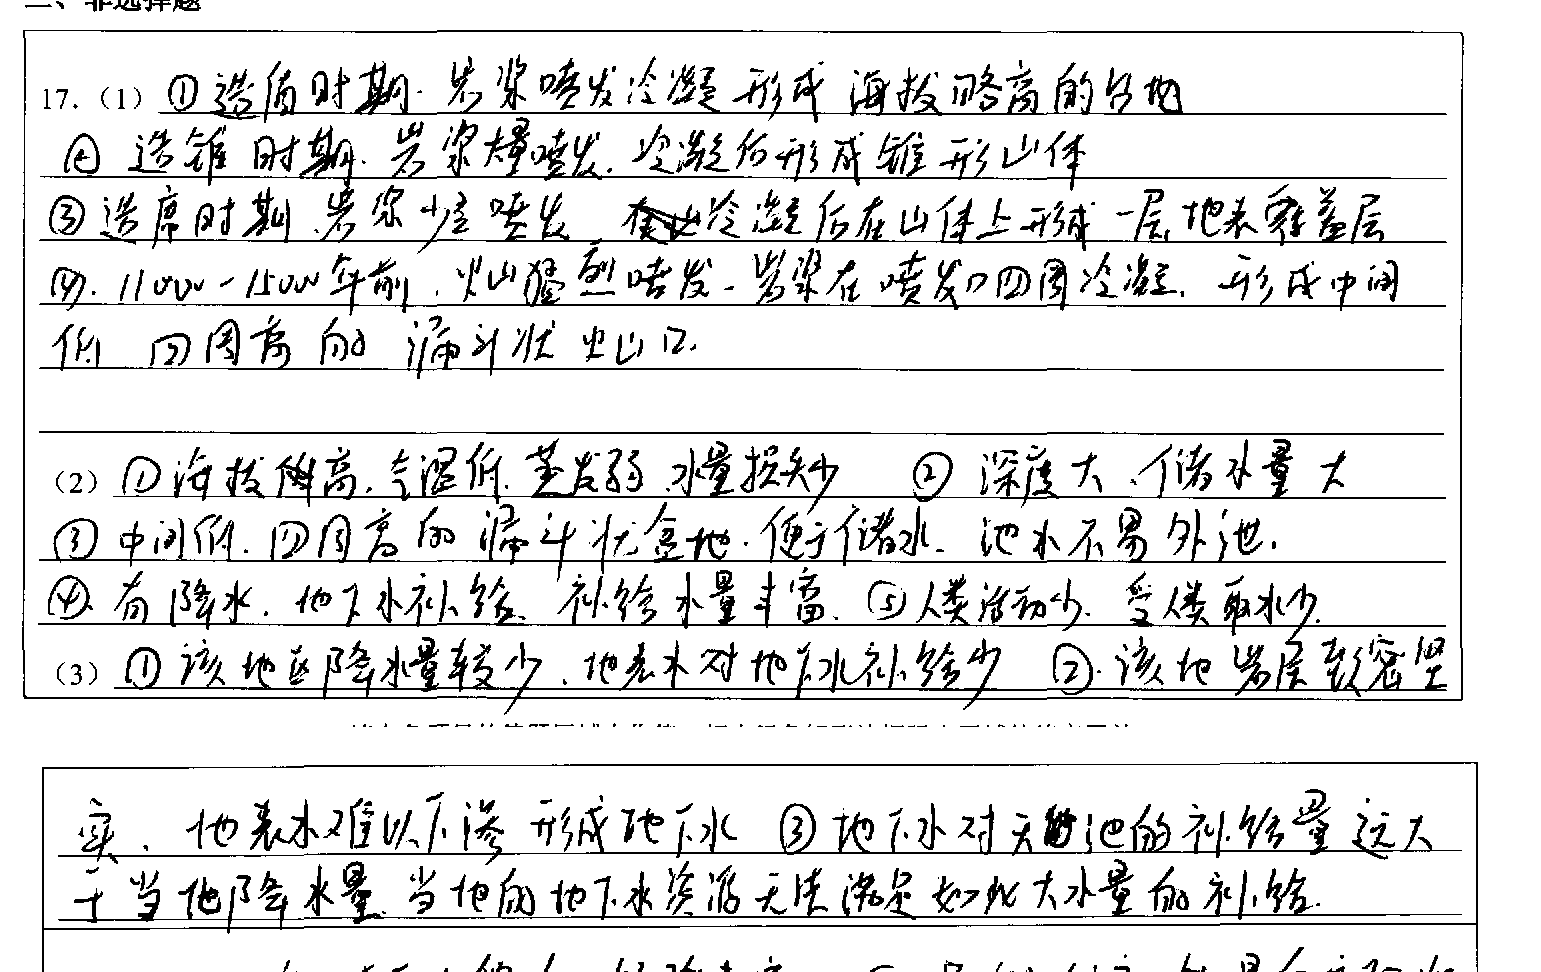 二、非选择题
17.（1）①造盾时期.岩浆喷发冷凝形成 海拔略高的台地
② 造锥时期.岩浆大量喷发.冷凝后形成锥形山体
③造席时期.岩浆少量喷发 冷凝后在山体上形成一层地表覆盖层
④.11000-1500年前.火山猛烈喷发.岩浆在喷发口四周冷凝.形成中间
低 四周高的 漏斗状火山口.
（2）①海拔高.气温低.蒸发弱.水量损失少 ② 深度大.储水量大
③中间低.四周高的漏斗状盆地.便于储水.池水不易外泄.
④.有降水.地下水补给.补给水量丰富.⑤人类活动少.受人类取水少.
（3）①该地区降水量较少.地表水对地下水补给少 ②.该地岩层致密坚
实.地表水难以下渗形成地下水 ③地下水对天池的补给量远大
于当地降水量.当地的地下水资源无法满足如此大水量的补给.